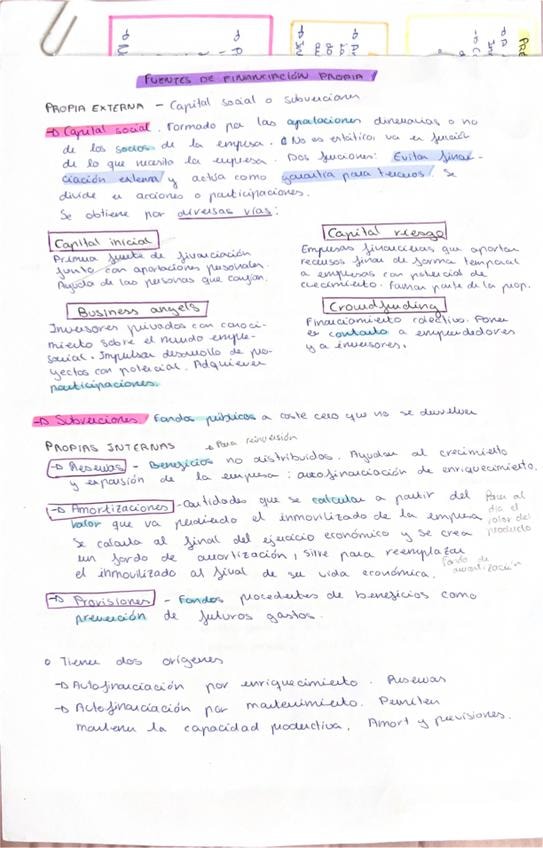 FUENTES DE FINANCIACIÓN PROPIA
PROPIA EXTERNA - Capital social o subvenciones
→ Capital social. Formado por las aportaciones dinerarias o no
de los socios de la empresa. No es estático, va en función
de lo que necesita la empresa. Dos funciones: Evitar finan-
ciación externa y actúa como garantía para terceros. Se
divide en acciones o participaciones.
Se obtiene por diversas vías:
Capital inicial
Primera fuente de financiación
junto con aportaciones personales.
Ayuda de las personas que confían.
Capital riesgo
Empresas financieras que aportan
recursos finan. de forma temporal
a empresas con potencial de
crecimiento. Forman parte de la prop.
Business angels
Inversores privados con conoci-
miento sobre el mundo empre-
sarial. Impulsar desarrollo de pro-
yectos con potencial. Adquieren
participaciones.
Crowdfunding
Financiamiento colectivo. Poner
en contacto a emprendedores
y a inversores.
→ Subvenciones / Fondos públicos a coste cero que no se devuelven
PROPIAS INTERNAS
→ Para reinversión
→ Reservas - Beneficios no distribuidos. Ayudan al crecimiento
y expansión de la empresa: autofinanciación de enriquecimiento.
→ Amortizaciones - Cantidades que se calculan a partir del
valor que va perdiendo el inmovilizado de la empresa
Se calcula al final del ejercicio económico y se crea
un fondo de amortización, sirve para reemplazar
el inmovilizado al final de su vida económica.
Poner al
día el
valor del
producto
Fondo de
amortización
→ Provisiones - Fondos procedentes de beneficios como
prevención de futuros gastos.
o Tienen dos orígenes
→ Autofinanciación por enriquecimiento. Reservas
→ Autofinanciación por mantenimiento. Permiten
mantener la capacidad productiva. Amort y previsiones.